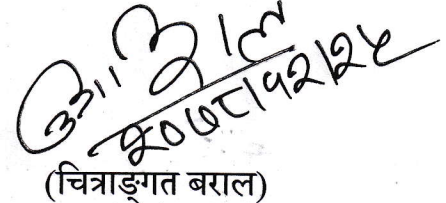 २०७८।१२।२५
(चित्राङ्गत बराल)